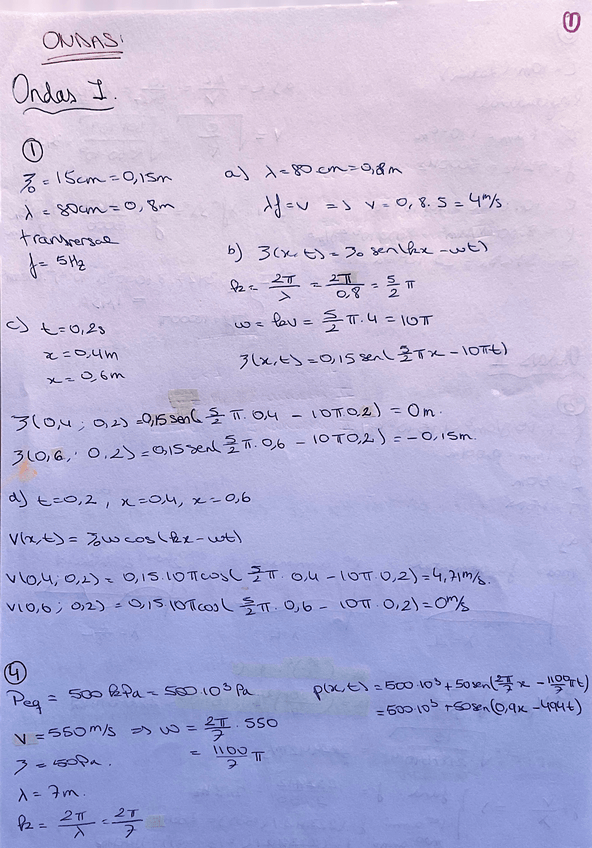 1
ONDAS:
Ondas I.
①
ξ₀ = 15cm = 0,15m
λ = 80cm = 0,8m
transversal
f = 5Hz
a) λ = 80cm = 0,8m
λf = v => v = 0,8.5 = 4 m/s
b) ξ(x,t) = ξ₀ sen(kx - wt)
k = 2π/λ = 2π/0,8 = 5/2 π
w = kv = 5/2 π.4 = 10π
ξ(x,t) = 0,15 sen(5/2 πx - 10πt)
c) t = 0,2s
x = 0,4m
x = 0,6m
ξ(0,4; 0,2) = 0,15 sen(5/2 π.0,4 - 10π0,2) = 0m.
ξ(0,6; 0,2) = 0,15 sen(5/2 π.0,6 - 10π0,2) = -0,15m.
d) t = 0,2, x = 0,4, x = 0,6
v(x,t) = ξ₀w cos(kx - wt)
v(0,4; 0,2) = 0,15.10π cos(5/2 π.0,4 - 10π.0,2) = 4,71m/s.
v(0,6; 0,2) = 0,15.10π cos(5/2 π.0,6 - 10π.0,2) = 0 m/s
④
Peq = 500 kPa = 500.10³ Pa
v = 550 m/s => w = 2π/7 . 550
= 1100/7 π
ξ = 50Pa.
λ = 7m.
k = 2π/λ = 2π/7
p(x,t) = 500.10³ + 50 sen(2π/7 x - 1100/7 πt)
= 500.10³ + 50 sen(0,9x - 494t)